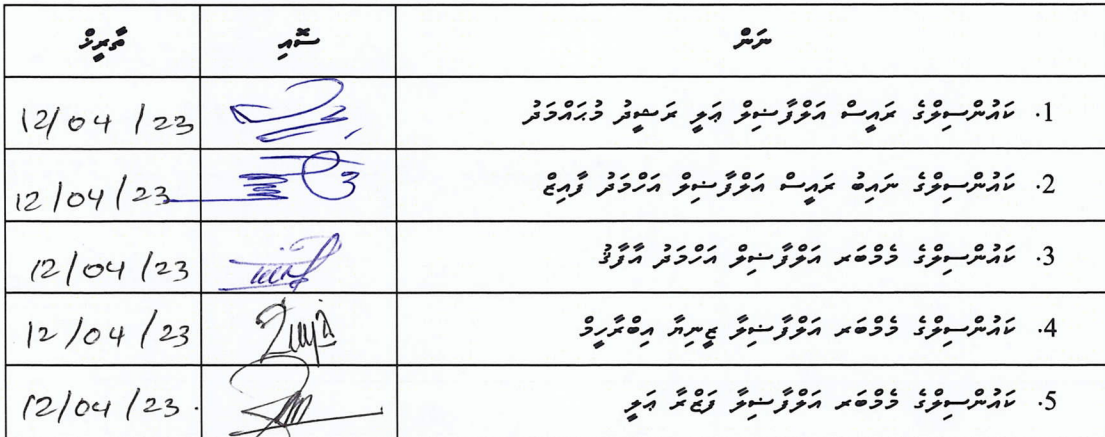 ނަން ސޮއި ތާރީޚް
1. ކައުންސިލްގެ ރައީސް އަލްފާޟިލް ޢަލީ ރަޝީދު މުޙައްމަދު 12/04/23
2. ކައުންސިލްގެ ނައިބު ރައީސް އަލްފާޟިލް އަހްމަދު ފާއިޒް 12/04/23
3. ކައުންސިލްގެ މެމްބަރ އަލްފާޟިލް އަހްމަދު އާފާޤު 12/04/23
4. ކައުންސިލްގެ މެމްބަރ އަލްފާޟިލާ ޒީނިޔާ އިބްރާހީމް 12/04/23
5. ކައުންސިލްގެ މެމްބަރ އަލްފާޟިލާ ފަޒްރާ ޢަލީ 12/04/23